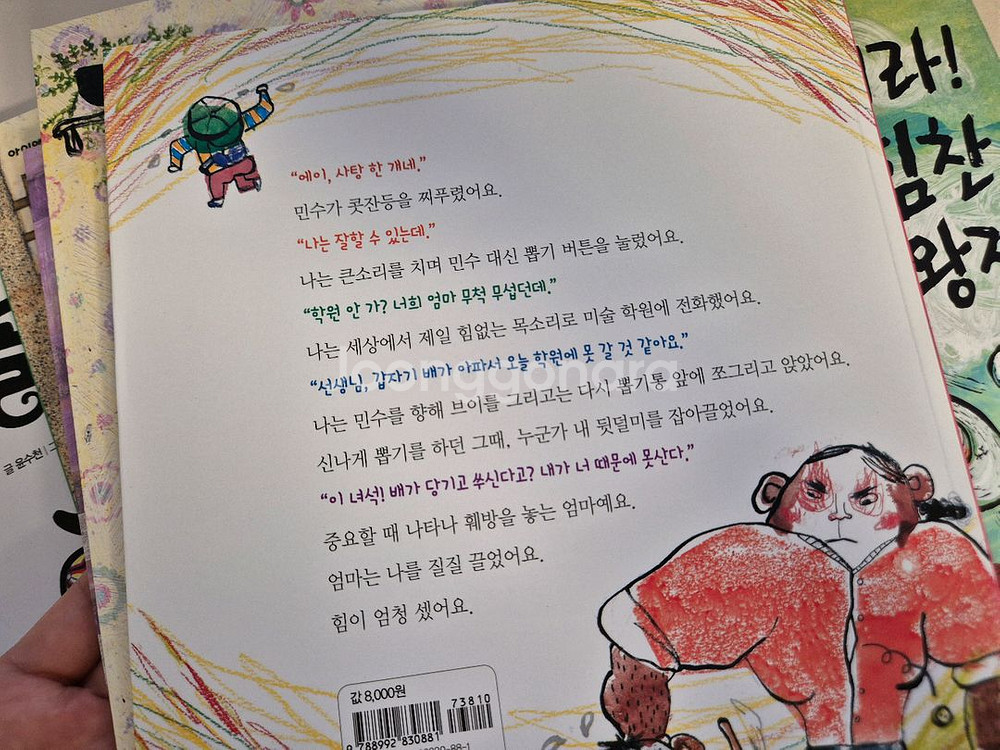 "에이, 사탕 한 개네."
민수가 콧잔등을 찌푸렸어요.
"나는 잘할 수 있는데."
나는 큰소리를 치며 민수 대신 뽑기 버튼을 눌렀어요.
"학원 안 가? 너희 엄마 무척 무섭던데."
나는 세상에서 제일 힘없는 목소리로 미술 학원에 전화했어요.
"선생님, 갑자기 배가 아파서 오늘 학원에 못 갈 것 같아요."
나는 민수를 향해 브이를 그리고는 다시 뽑기통 앞에 쪼그리고 앉았어요.
신나게 뽑기를 하던 그때, 누군가 내 뒷덜미를 잡아끌었어요.
"이 녀석! 배가 당기고 쑤신다고? 내가 너 때문에 못산다."
중요할 때 나타나 훼방을 놓는 엄마예요.
엄마는 나를 질질 끌었어요.
힘이 엄청 셌어요.
값 8,000원
73810
9 788992 830881
라!
힘찬
왕자
글 윤수천
joonggonara